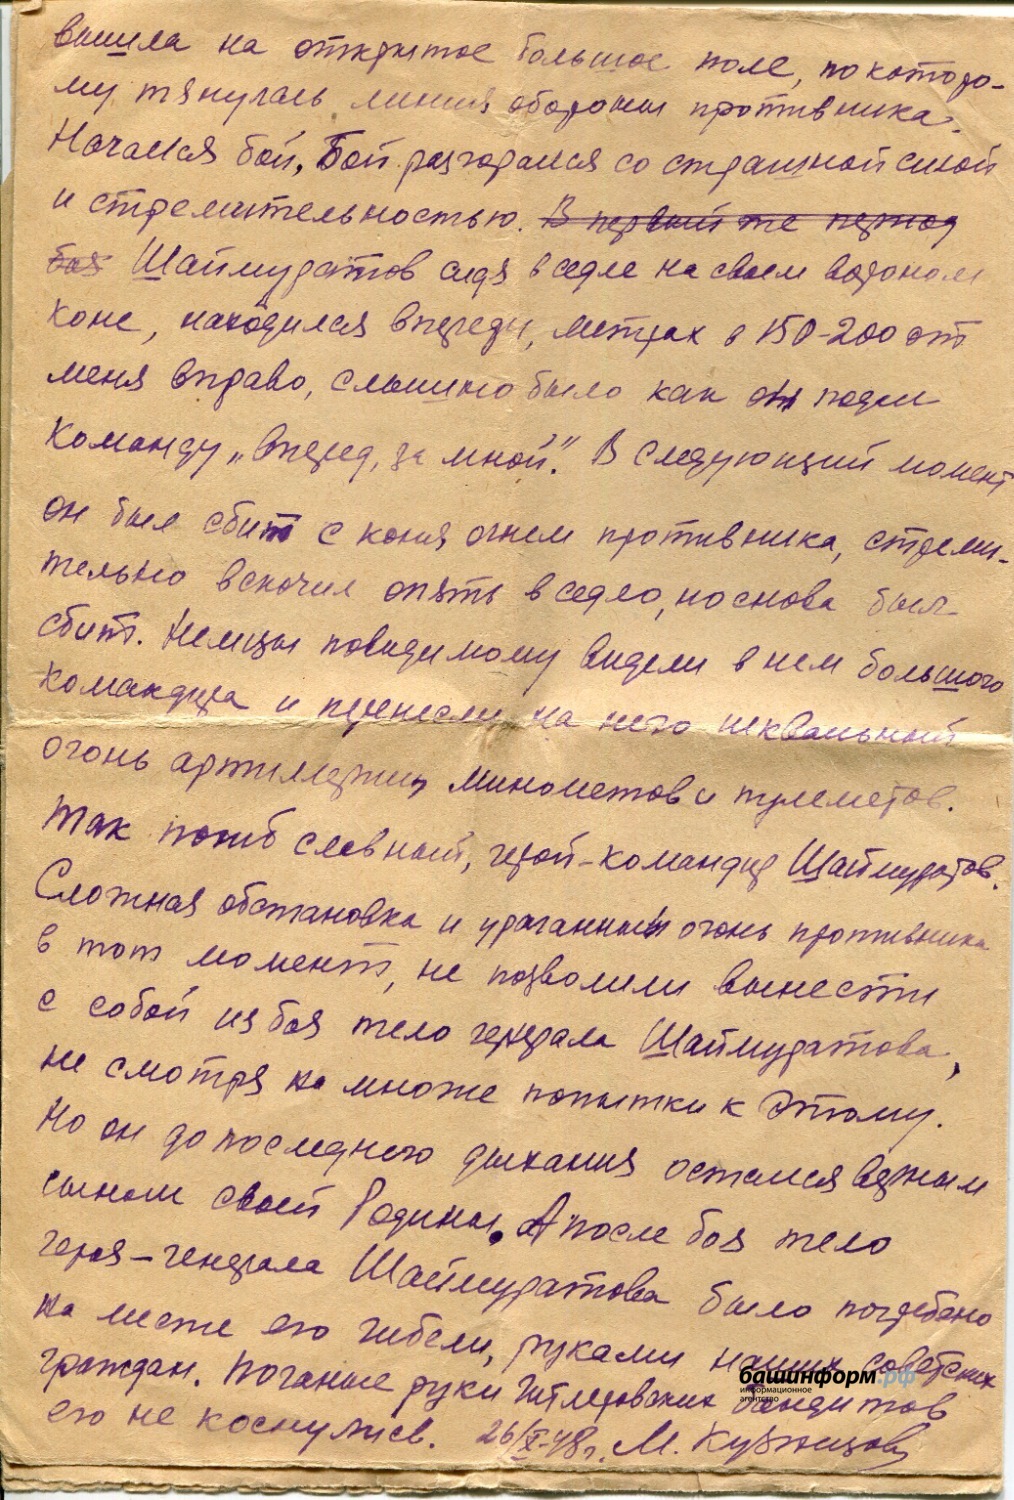 вышла на открытое большое поле, по которо-
му тянулась линия обороны противника.
Начался бой, Бой разгорался со страшной силой
и стремительностью. В первый же период
боя Шаймуратов сидя в седле на своем вороном
коне, находился впереди, метрах в 150-200 от
меня вправо, слышно было как он подал
команду „вперед, за мной". В следующий момент
он был сбит с коня огнем противника, стреми-
тельно вскочил опять в седло, но снова был
сбит. Немцы повидимому видели в нем большого
командира и перенесли на него шквальный
огонь артиллерии, минометов и пулеметов.
Так погиб славный, герой-командир Шаймуратов.
Сложная обстановка и ураганный огонь противника
в тот момент, не позволили вынести
с собой из боя тело генерала Шаймуратова,
не смотря на множе попытки к этому.
Но он до последнего дыхания остался верным
сыном своей Родины. А после боя тело
героя-генерала Шаймуратова было погребено
на месте его гибели, руками наших советских
граждан. Поганые руки гитлеровских бандитов
его не коснулись. 26/X-48 г. М. Кузнецов
башинформ.рф
информационное
агентство